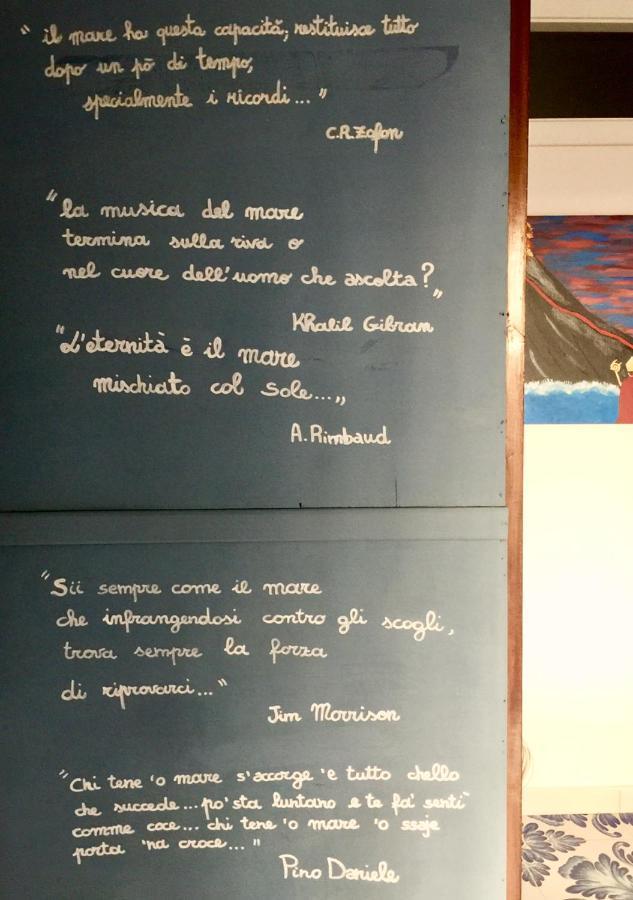 “ il mare ha questa capacità; restituisce tutto
dopo un pò di tempo,
specialmente i ricordi... ”
C.R.Zafon
“la musica del mare
termina sulla riva o
nel cuore dell'uomo che ascolta?”
KHalil Gibran
“L'eternità è il mare
mischiato col Sole...”
A. Rimbaud
“Sii sempre come il mare
che infrangendosi contro gli scogli,
trova sempre la forza
di riprovarci...”
Jim Morrison
“Chi tene 'o mare s'accorge 'e tutto chello
che succede... po' sta luntano e te fa' senti'
comme coce... chi tene 'o mare 'o ssaje
porta 'na croce... ”
Pino Daniele